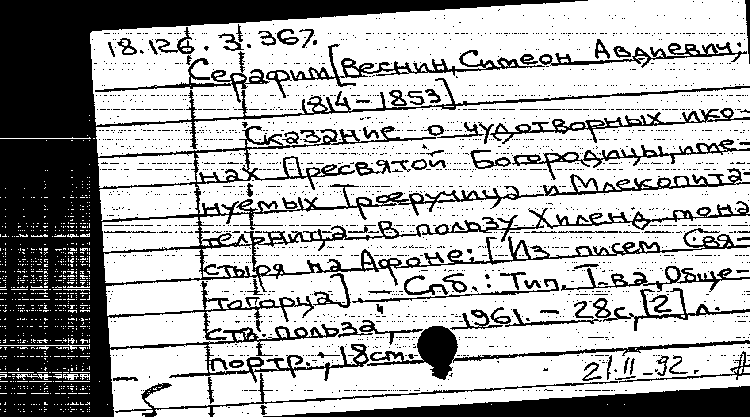 18.126.3.367.
Серафим [Веснин, Симеон Авдиевич;
1814-1853].
Сказание о чудотворных ико-
нах Пресвятой Богородицы, име-
нуемых Троеручица и Млекопита-
тельница: В пользу Хиленд. мона-
стыря на Афоне: [Из писем Свя-
тогорца]. – Спб.: Тип. Т-ва „Обще-
ств. польза“, 1961. – 28с, [2] л.
портр.; 18см.
21.11_92.